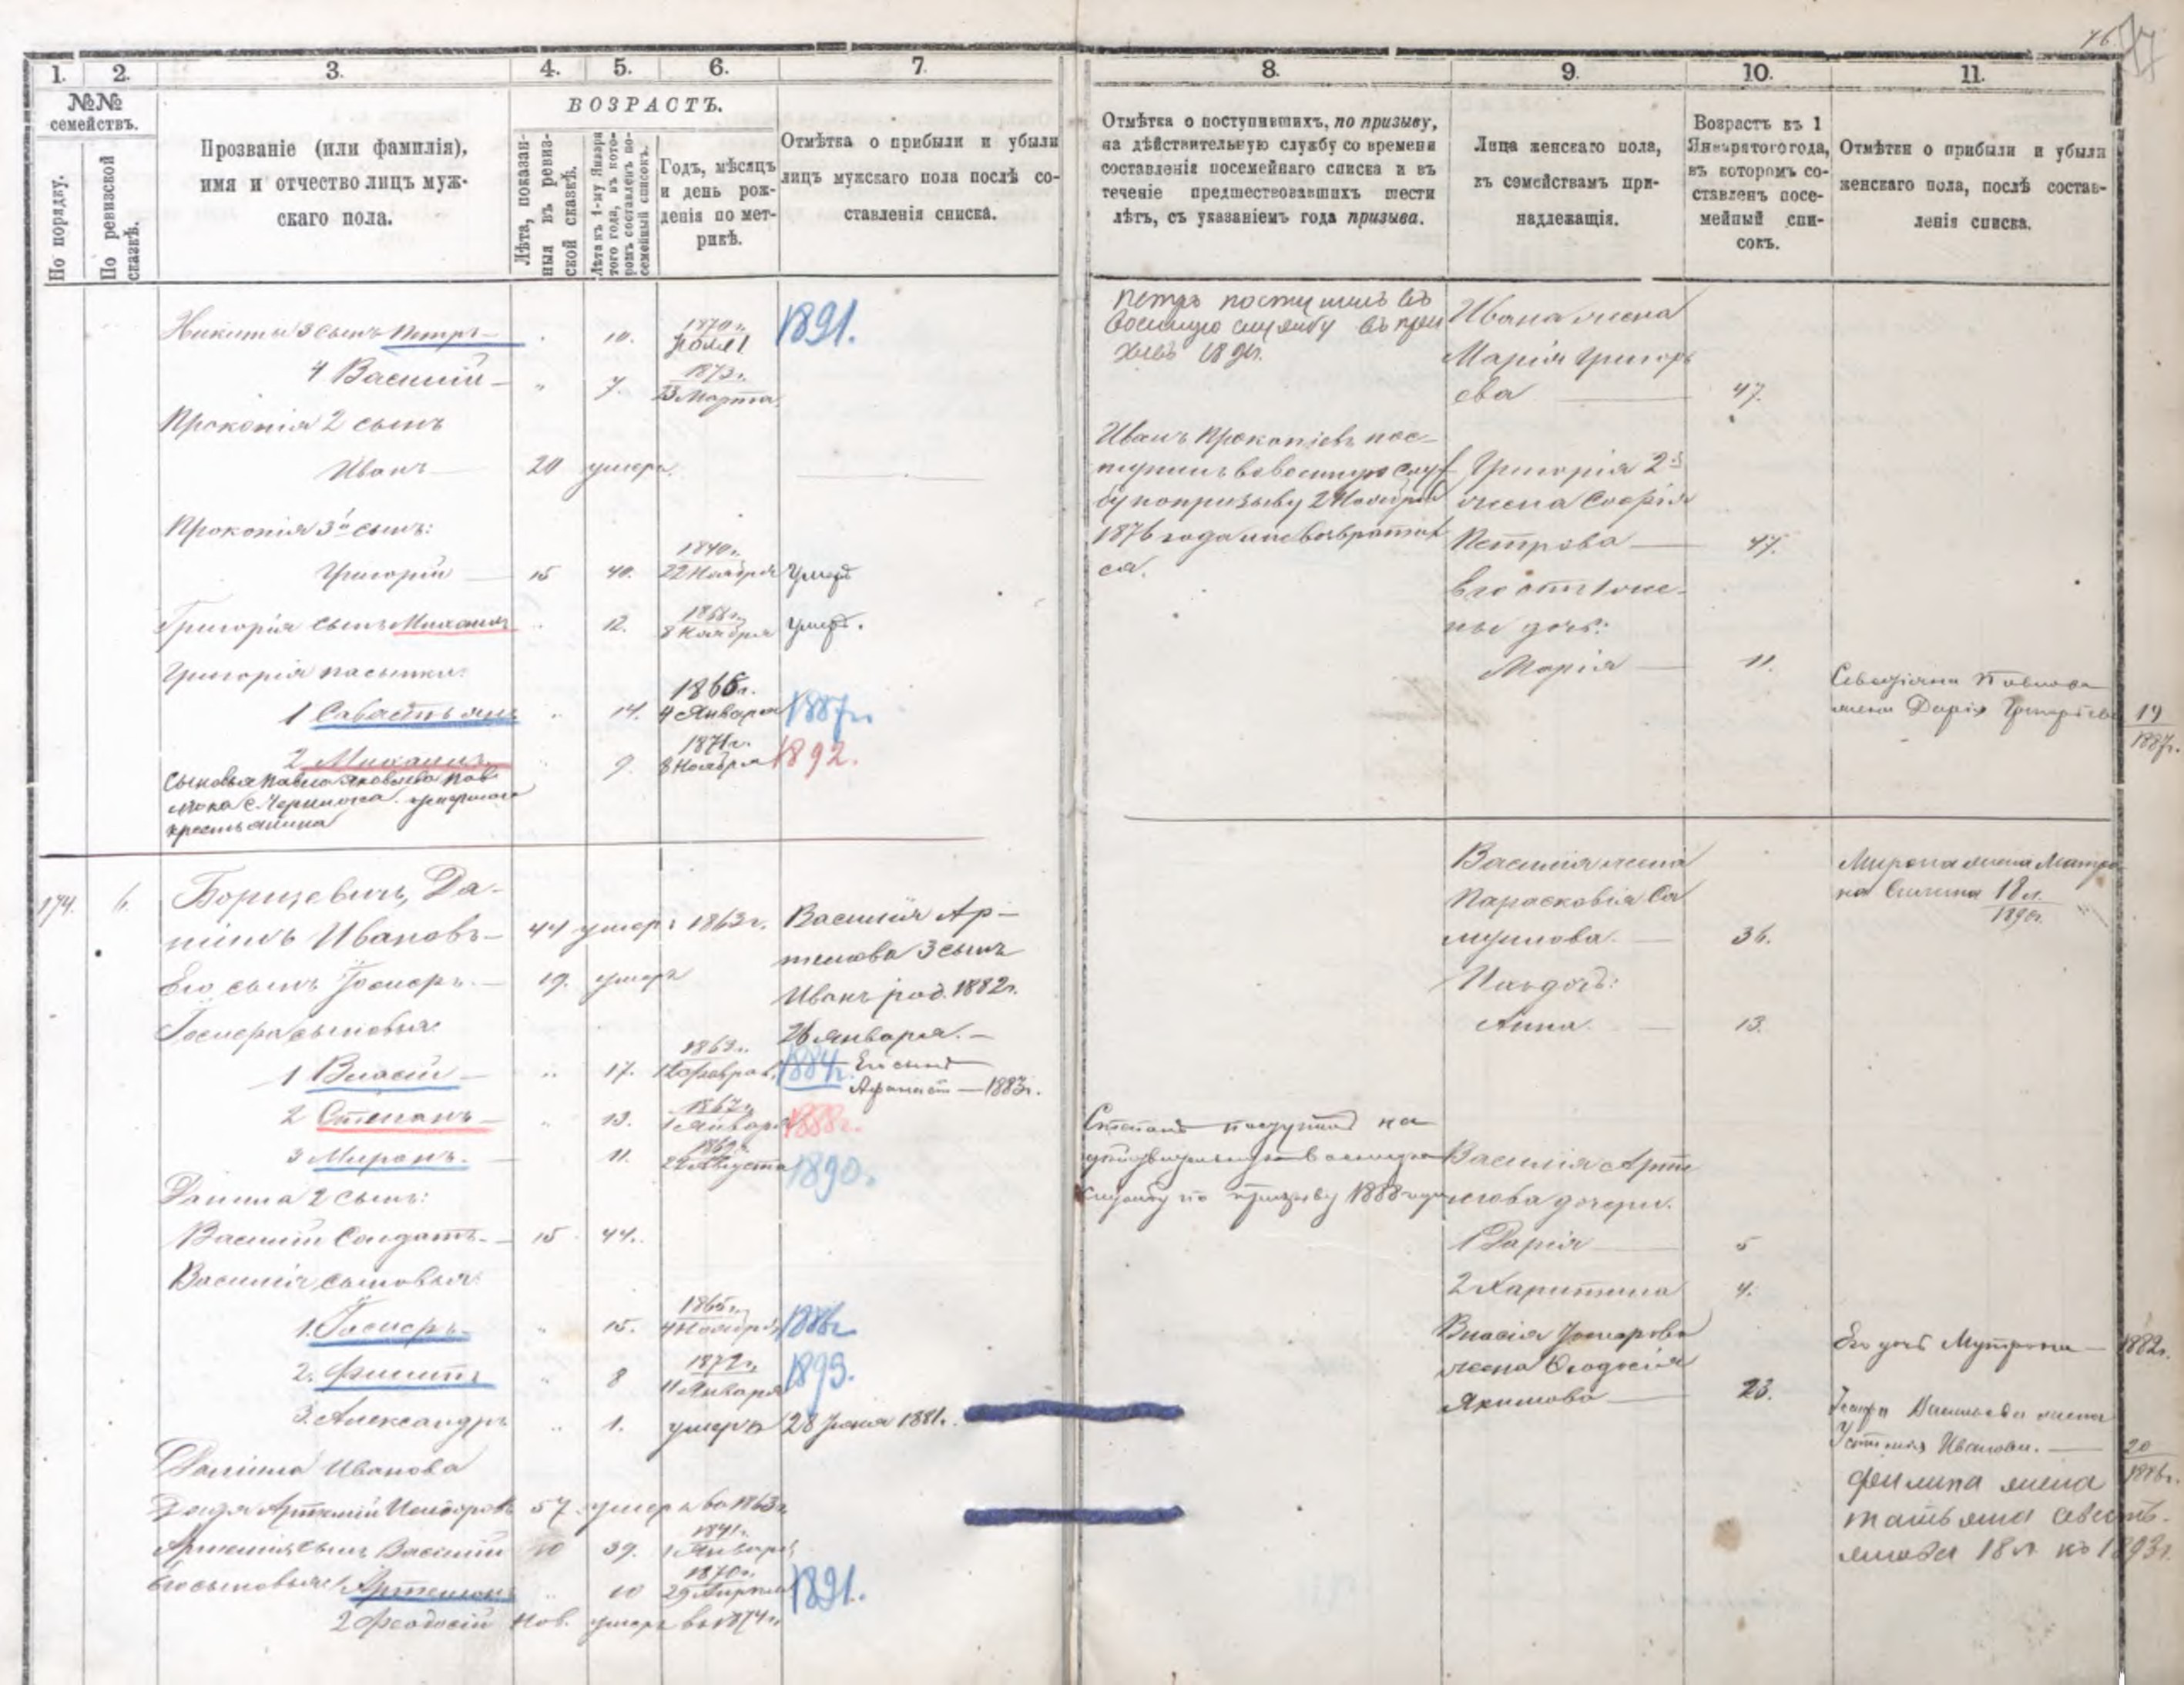 76
77
1.
2.
3.
4.
5.
6.
7.
8.
9.
10.
11.
№№
семействъ.
По порядку.
По ревизской
сказкѣ.
Прозваніе (или фамилія),
имя и отчество лицъ муж-
скаго пола.
ВОЗРАСТЪ.
Лѣта, показан-
ныя въ ревиз-
ской сказкѣ.
Лѣта къ 1-му Января
того года, въ кото-
ромъ составленъ по-
семейный списокъ.
Годъ, мѣсяцъ
и день рож-
денія по мет-
рикѣ.
Отмѣтка о прибыли и убыли
лицъ мужскаго пола послѣ со-
ставленія списка.
Отмѣтка о поступившихъ, по призыву,
на дѣйствительную службу со времени
составленія посемейнаго списка и въ
теченіе предшествовавшихъ шести
лѣтъ, съ указаніемъ года призыва.
Лица женскаго пола,
къ семействамъ при-
надлежащія.
Возрастъ къ 1
Января того года,
въ которомъ со-
ставленъ посе-
мейный спи-
сокъ.
Отмѣтки о прибыли и убыли
женскаго пола, послѣ состав-
ленія списка.
Никиты 3 сынъ Петръ 10. 1870 г. 1891.
4 Василій 7. 1873 г.
23 Марта
Прокопія 2 сынъ
Иванъ 20 умеръ
Прокопія 3й сынъ:
Григорій 15 40. 1840 г.
22 Ноября умеръ
Григорія сынъ Михаилъ 12. 8 Ноября умеръ.
Григорія пасынки:
1 Савастьянъ 14. 1866 г.
4 Января 1887 г.
2 Михаилъ 9. 1871 г.
8 Ноября 1892.
Сыновья Павла Яковлева
крестьянина
Петръ поступилъ въ
военную службу въ при
1891 г.
Иванъ Прокопіевъ пос-
тупилъ въ военную служ
бу по призыву 2 Ноября
1876 года и не возвратил
ся.
Ивана жена
Марія Григорь
ева 47.
Григорія 2я
жена Софія
Петрова 47.
Его отъ 1 же-
ны дочь:
Марія 11.
жена Дарія Григорьева 19
1887 г.
174. 6. Борщевичъ, Да-
ніилъ Ивановъ 44 умеръ 1863 г.
Его сынъ Іосифъ 19. умеръ
сыновья
1 Власій 17. 1863 г.
12 Феврал. 1884 г.
2 Степанъ 13. 1867 г.
1 Января 1888 г.
3 Миронъ. 11. 1869 г.
22 Августа 1890.
Данила 2 сынъ:
Василій Солдатъ 15 44.
Василія сыновья:
1. 15. 1865 г.
4 Ноября 1886 г.
2. Филиппъ 8 1872 г.
11 Января 1893.
3. Александръ 1. умеръ 28 Іюня 1881 г.
Даніила Иванова
дядя Артемій 57 умеръ въ 1863 г.
Артемія сынъ Василій 39. 1841 г.
1 Января
Его сыновья 1 Артемонъ 10 1870 г.
29 Апрѣля 1891.
2 Феодосій Нов. умеръ въ 1874 г.
Василія Ар-
темова 3 сынъ
Иванъ род. 1882 г.
26 Января.
Его сынъ
1883 г.
Степанъ поступилъ на
дѣйствительную военную
службу по призыву 1888 года
Василія жена
Парасковія Са
муилова. 36.
Ихъ дочь:
Анна. 13.
Василія Арте
мова дочери.
1 Дарія 5
2 Харитина 4.
Власія
жена Феодосія
Якимова 23.
Мирона жена Матро
на 18 л.
1890 г.
Его дочь 1882 г.
Васильева жена
Устинія Иванова. 20
1886 г.
Филипа жена
татьяна
18 л. къ 1893 г.